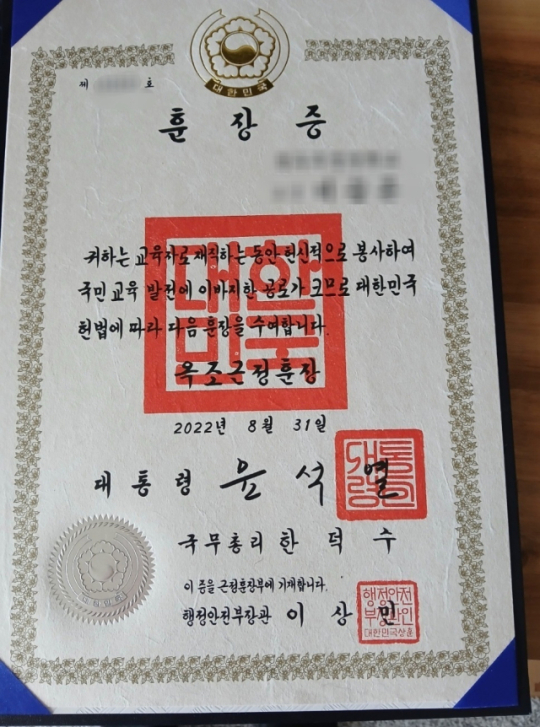 대한민국
제 호
훈장증
귀하는 교육자로 재직하는 동안 헌신적으로 봉사하여
국민 교육 발전에 이바지한 공로가 크므로 대한민국
헌법에 따라 다음 훈장을 수여합니다.
대한민국
옥조근정훈장
2022년 8월 31일
대통령 윤석열
대통령인
국무총리 한덕수
이 증을 근정훈장부에 기재합니다.
행정안전부장관 이상민
행정안전
부장관인
대한민국상훈